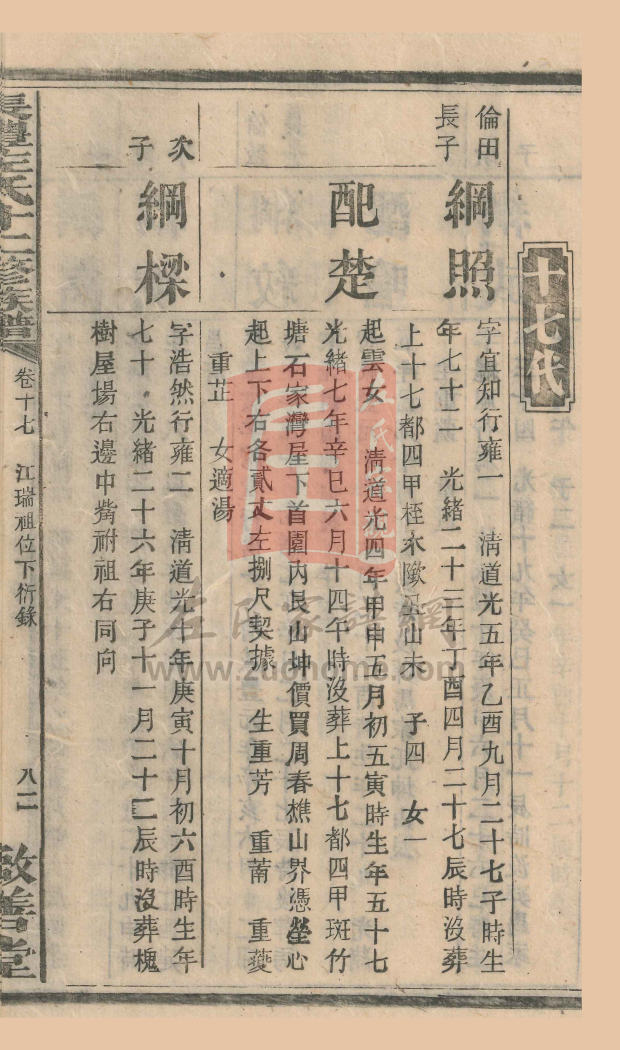 十七代
倫田長子
綱照
字宜知行雍一　清道光五年乙酉九月二十七子時生
年七十二　光緒二十三年丁酉四月二十七辰時沒葬
上十七都四甲桎木 山未　子四　女一
配楚
起雲女　清道光四年甲申五月初五寅時生年五十七
光緒七年辛巳六月十四午時沒葬上十七都四甲斑竹
塘石家灣屋下首園內艮山坤價買周春樵山界憑塋心
起上下右各貳丈左捌尺契據　生重芳　重莆　重䕫
重芷　女適湯
次子
綱樑
字浩然行雍二　清道光十年庚寅十月初六酉時生年
七十　光緒二十六年庚子十一月二十二辰時沒葬槐
樹屋場右邊中嘴祔祖右同向
左氏十二修族譜
卷十七　江瑞祖位下衍錄
八二
敦善堂
左氏家譜網
www.zuohome.com